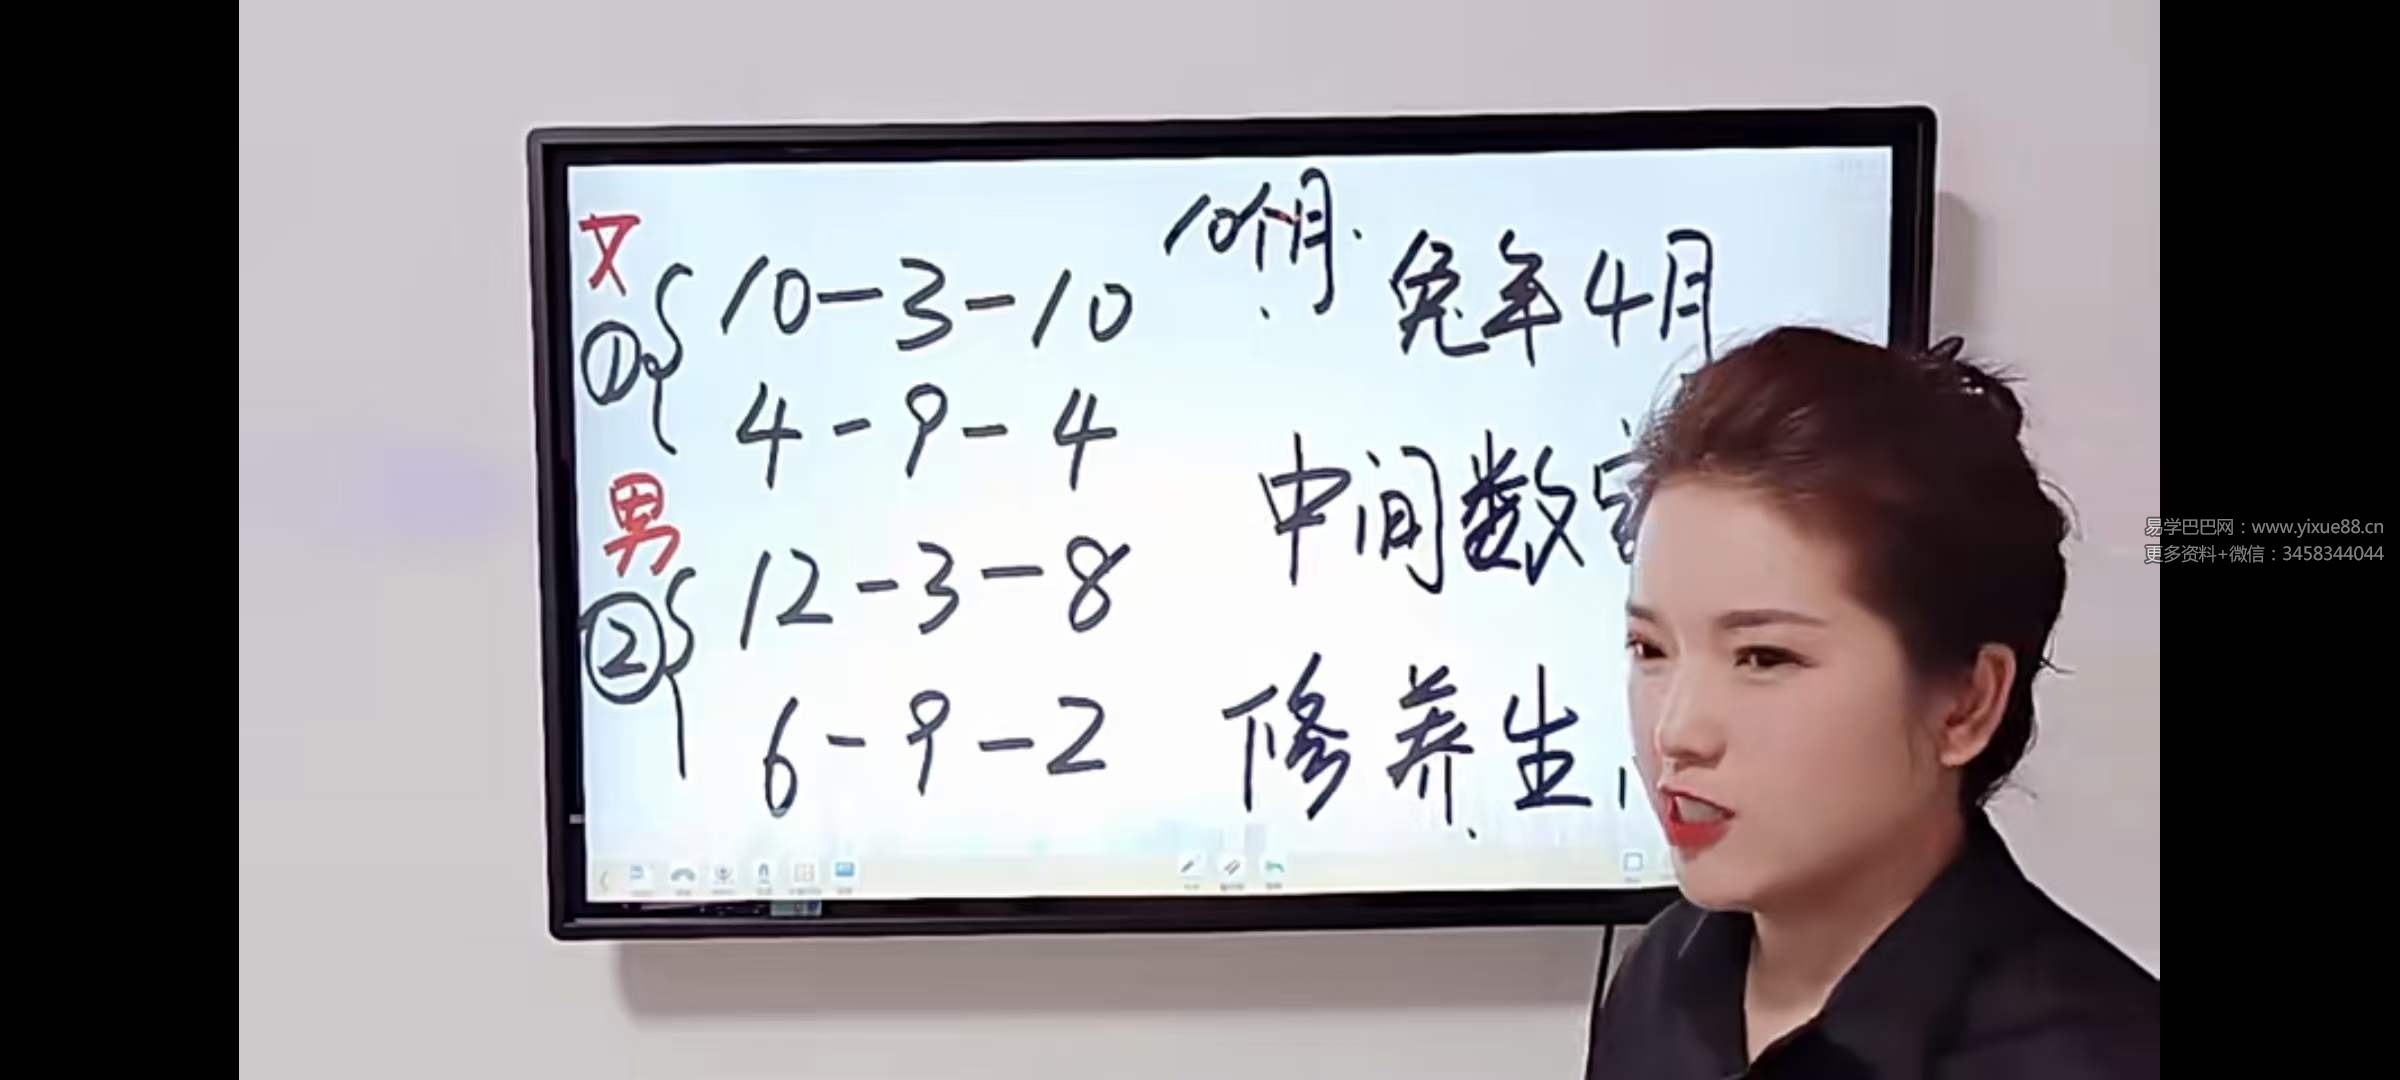 10个月.
女
① 10-3-10
兔年4月
4-9-4
中间数字
男
② 12-3-8
6-9-2
修养生
易学巴巴网：www.yixue88.cn
更多资料+微信：3458344044